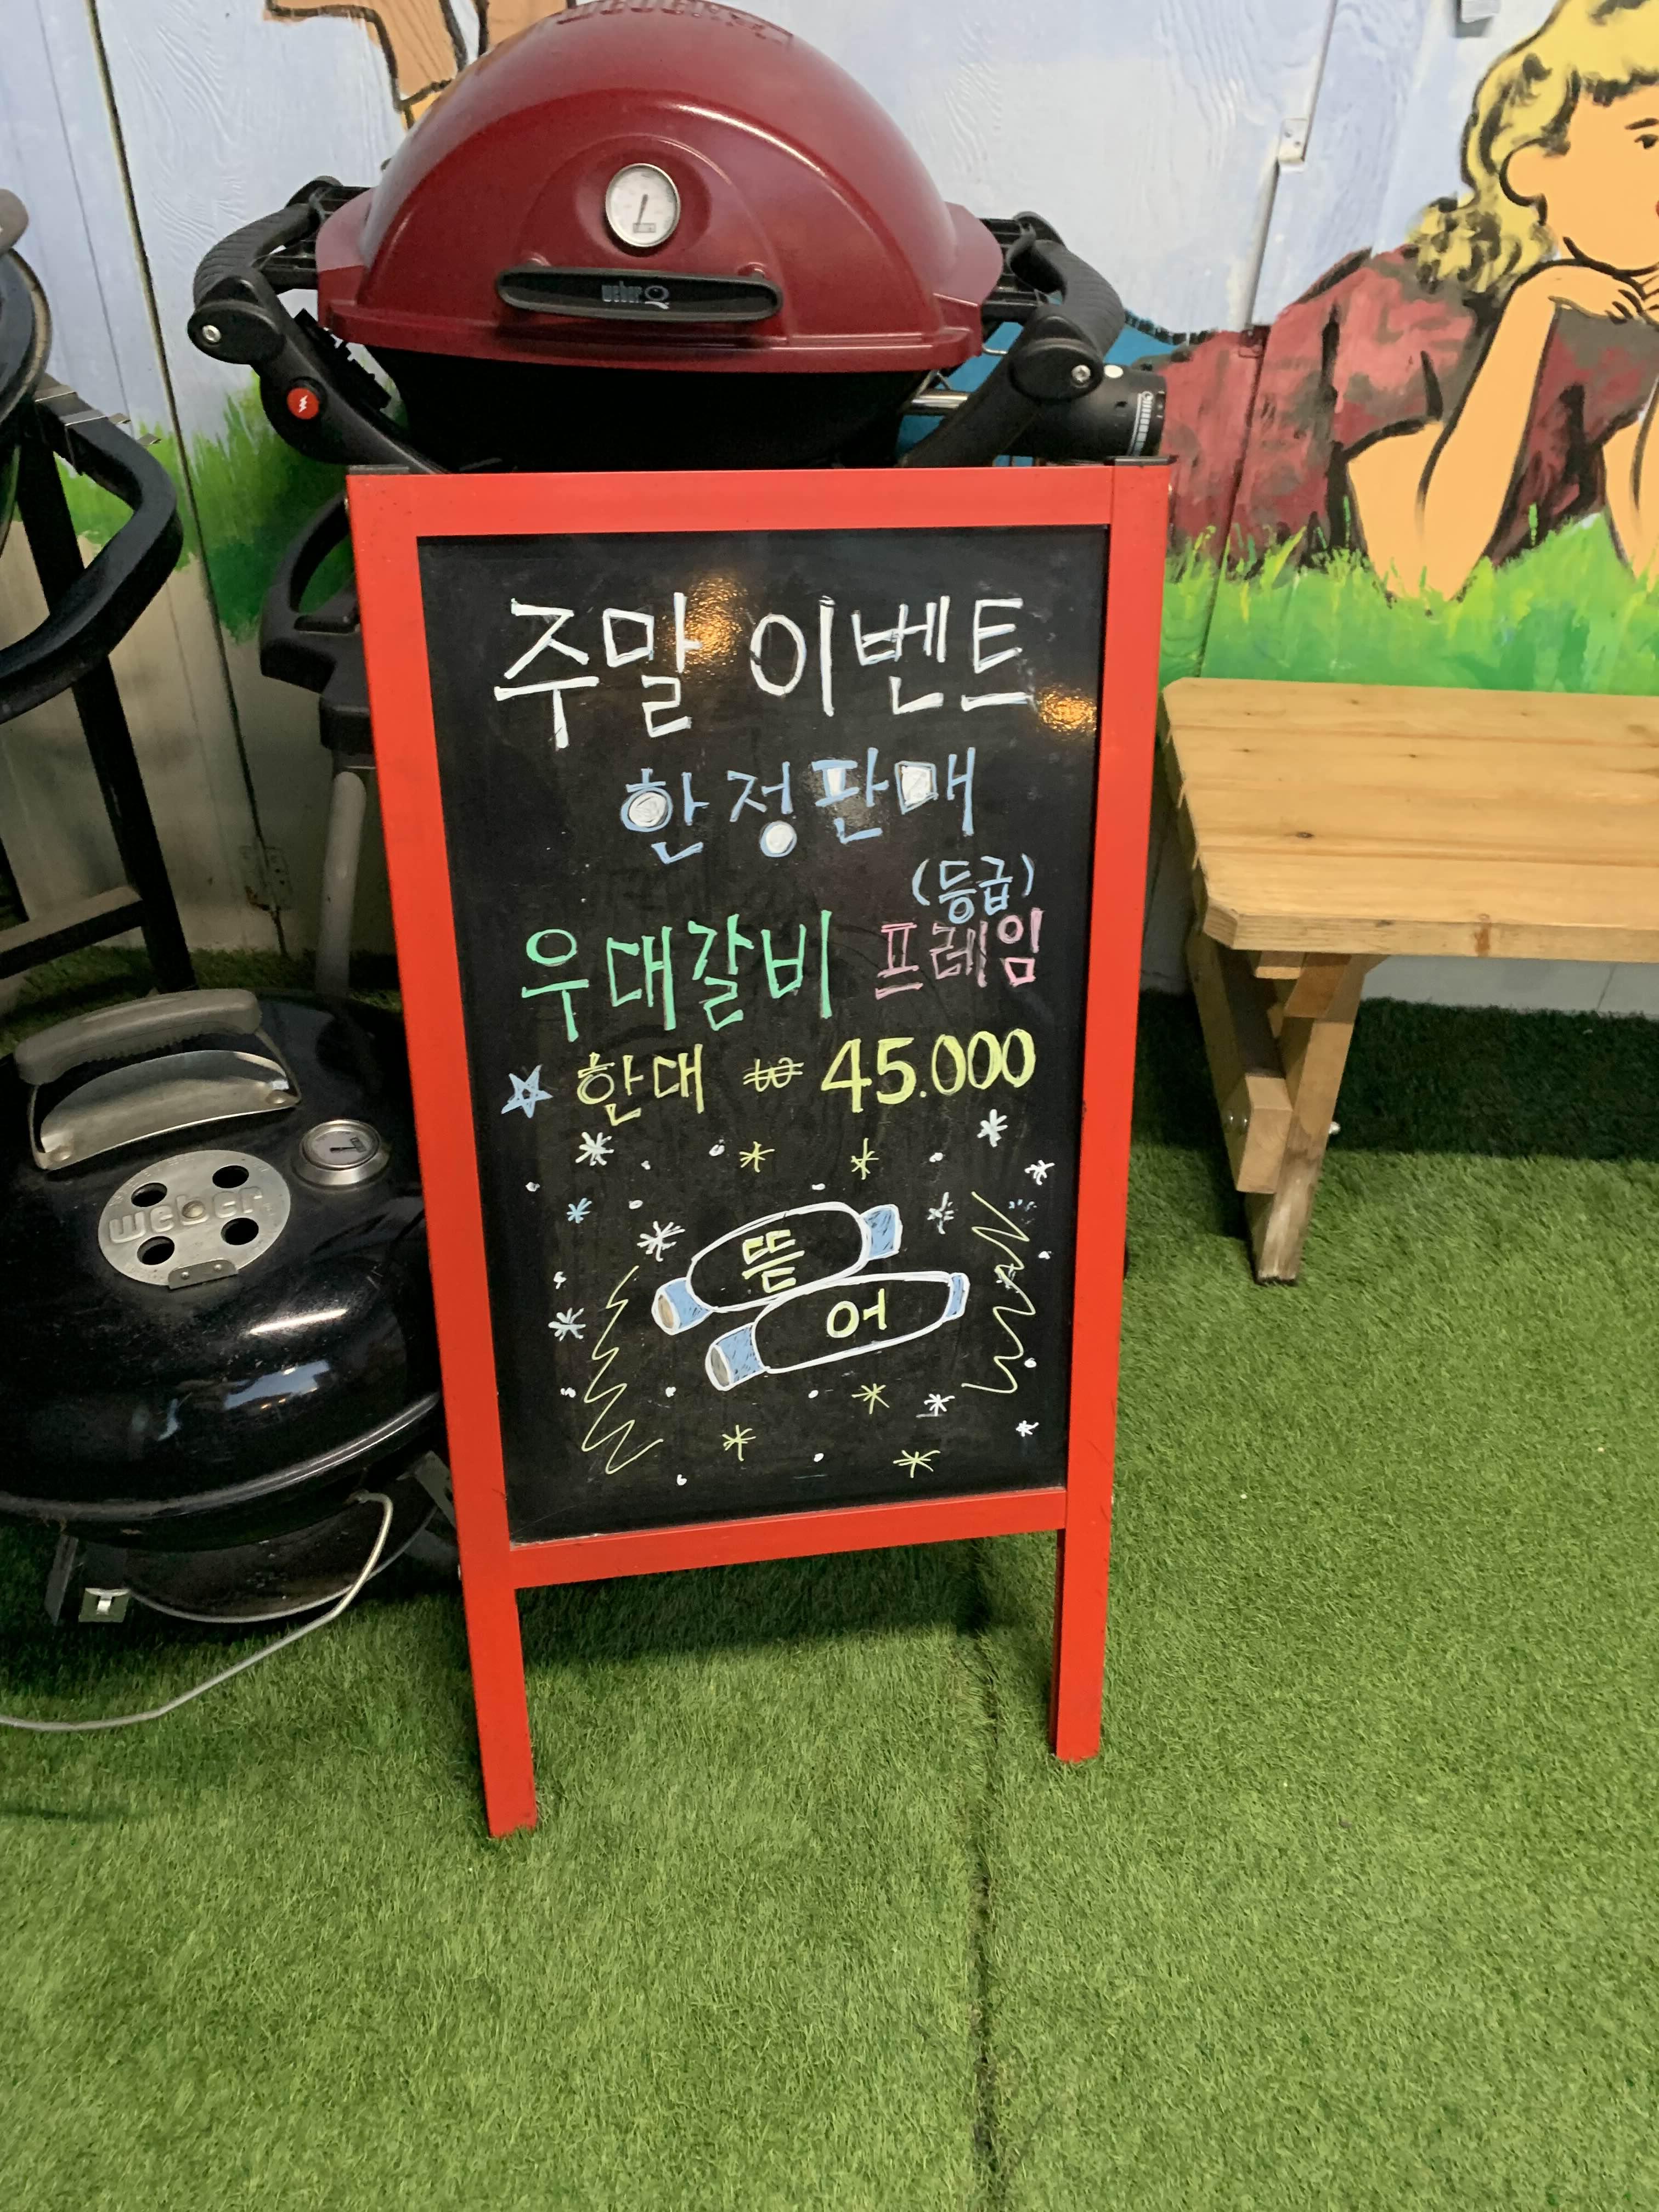 weber Q
주말 이벤트
한정판매
(등급)
우대갈비 프레임
한대 ₩ 45.000
뜯
어
weber